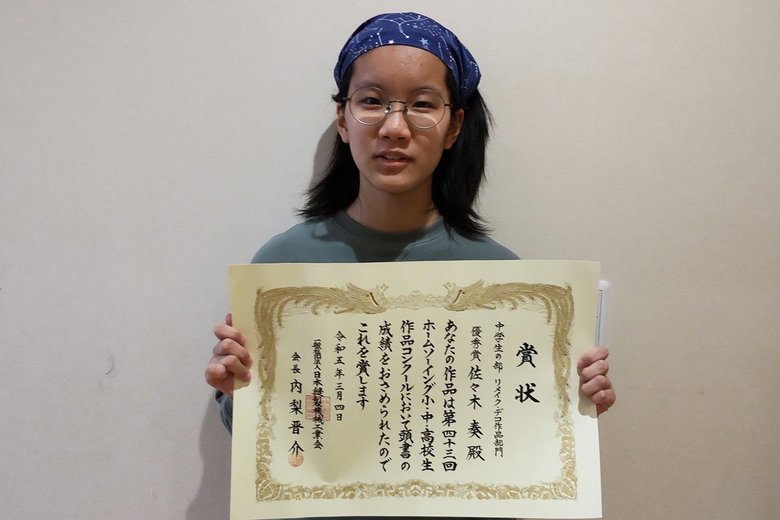 賞状
中学生の部 リメイク・デコ作品部門
優秀賞 佐々木 奏 殿
あなたの作品は第四十三回
ホームソーイング小・中・高校生
作品コンクールにおいて頭書の
成績をおさめられたので
これを賞します
令和五年三月四日
一般社団法人日本縫製機械工業会
会長 内梨晋介